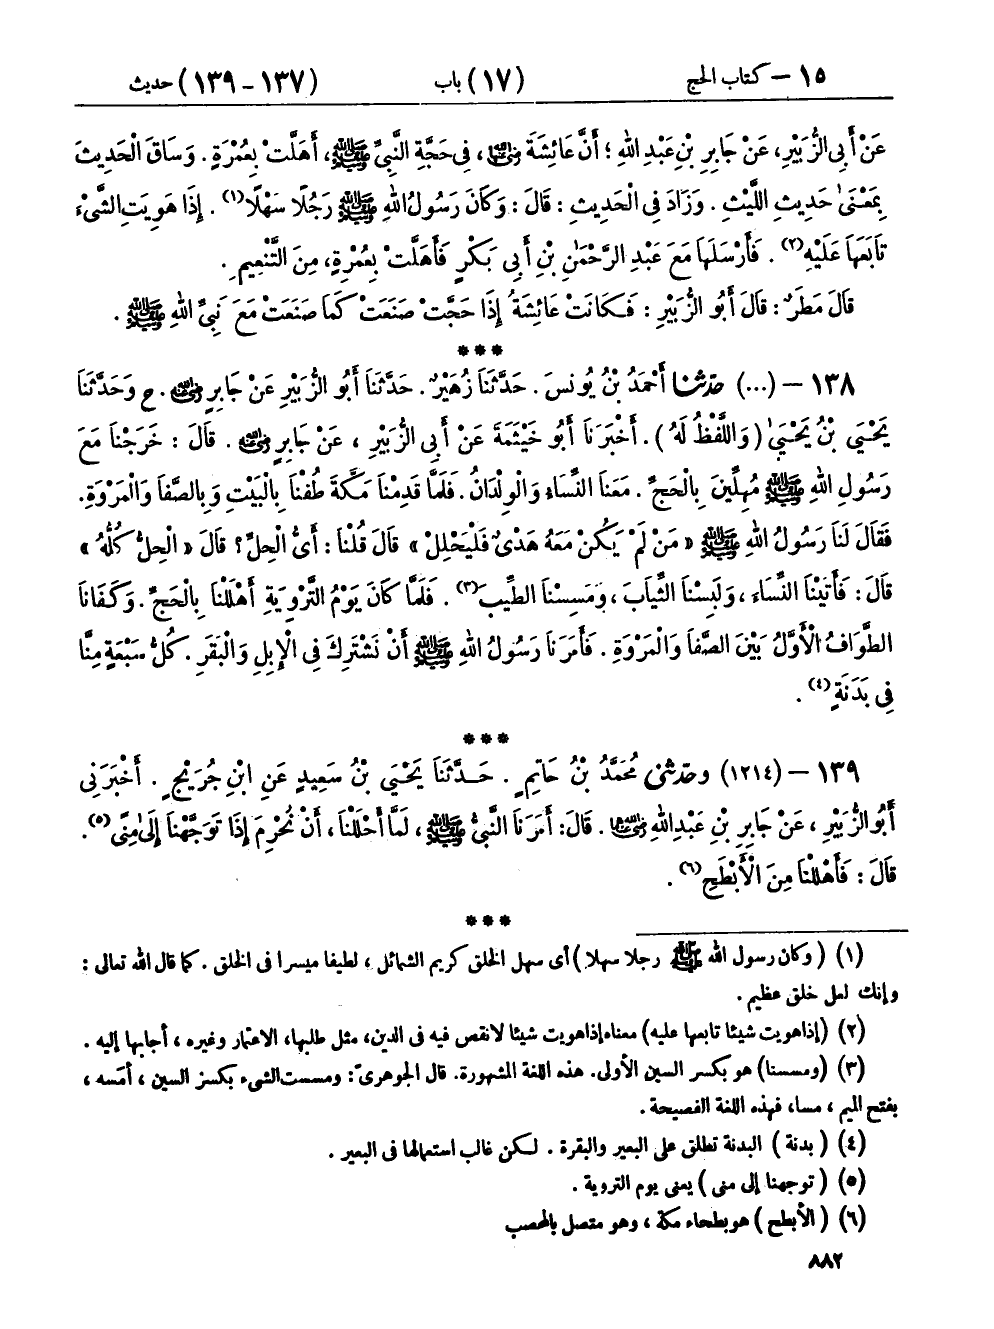 ١٥ – كتاب الحج (١٧) باب (١٣٧ – ١٣٩) حديث
عَنْ أَبِي الزُّبَيْرِ، عَنْ جَابِرِ بْنِ عَبْدِ اللهِ ؛ أَنَّ عَائِشَةَ رضي الله عنها، فِي حَجَّةِ النَّبِيِّ ﷺ، أَهَلَّتْ بِعُمْرَةٍ. وَسَاقَ الْحَدِيثَ
بِمَعْنَىٰ حَدِيثِ اللَّيْثِ. وَزَادَ فِي الْحَدِيثِ: قَالَ: وَكَانَ رَسُولُ اللهِ ﷺ رَجُلًا سَهْلًا(١). إِذَا هَوِيَتِ الشَّيْءَ
تَابَعَهَا عَلَيْهِ(٢). فَأَرْسَلَهَا مَعَ عَبْدِ الرَّحْمٰنِ بْنِ أَبِي بَكْرٍ فَأَهَلَّتْ بِعُمْرَةٍ، مِنَ التَّنْعِيمِ.
قَالَ مَطَرٌ: قَالَ أَبُو الزُّبَيْرِ: فَكَانَتْ عَائِشَةُ إِذَا حَجَّتْ صَنَعَتْ كَمَا صَنَعَتْ مَعَ نَبِيِّ اللهِ ﷺ.
***
١٣٨ – (...) حدثنا أَحْمَدُ بْنُ يُونُسَ. حَدَّثَنَا زُهَيْرٌ. حَدَّثَنَا أَبُو الزُّبَيْرِ عَنْ جَابِرٍ رضي الله عنه. ح وَحَدَّثَنَا
يَحْيَى بْنُ يَحْيَىٰ (وَاللَّفْظُ لَهُ). أَخْبَرَنَا أَبُو خَيْثَمَةَ عَنْ أَبِي الزُّبَيْرِ، عَنْ جَابِرٍ رضي الله عنه. قَالَ: خَرَجْنَا مَعَ
رَسُولِ اللهِ ﷺ مُهِلِّينَ بِالْحَجِّ. مَعَنَا النِّسَاءُ وَالْوِلْدَانُ. فَلَمَّا قَدِمْنَا مَكَّةَ طُفْنَا بِالْبَيْتِ وَبِالصَّفَا وَالْمَرْوَةِ.
فَقَالَ لَنَا رَسُولُ اللهِ ﷺ «مَنْ لَمْ يَكُنْ مَعَهُ هَدْيٌ فَلْيَحْلِلْ» قَالَ قُلْنَا: أَيُّ الْحِلِّ؟ قَالَ «الْحِلُّ كُلُّهُ»
قَالَ: فَأَتَيْنَا النِّسَاءَ، وَلَبِسْنَا الثِّيَابَ، وَمَسِسْنَا الطِّيبَ(٣). فَلَمَّا كَانَ يَوْمُ التَّرْوِيَةِ أَهْلَلْنَا بِالْحَجِّ. وَكَفَانَا
الطَّوَافُ الْأَوَّلُ بَيْنَ الصَّفَا وَالْمَرْوَةِ. فَأَمَرَنَا رَسُولُ اللهِ ﷺ أَنْ نَشْتَرِكَ فِي الْإِبِلِ وَالْبَقَرِ. كُلُّ سَبْعَةٍ مِنَّا
فِي بَدَنَةٍ(٤).
***
١٣٩ – (١٢١٤) وحدثني مُحَمَّدُ بْنُ حَاتِمٍ. حَدَّثَنَا يَحْيَى بْنُ سَعِيدٍ عَنِ ابْنِ جُرَيْجٍ. أَخْبَرَنِي
أَبُو الزُّبَيْرِ، عَنْ جَابِرِ بْنِ عَبْدِ اللهِ رضي الله عنهما. قَالَ: أَمَرَنَا النَّبِيُّ ﷺ، لَمَّا أَحْلَلْنَا، أَنْ نُحْرِمَ إِذَا تَوَجَّهْنَا إِلَىٰ مِنًى(٥).
قَالَ: فَأَهْلَلْنَا مِنَ الْأَبْطَحِ(٦).
***
(١) (وكان رسول الله ﷺ رجلا سهلا) أى سهل الخلق كريم الشمائل، لطيفا ميسرا فى الخلق. كما قال الله تعالى:
وإنك لعلى خلق عظيم.
(٢) (إذا هويت شيئا تابعها عليه) معناه إذا هويت شيئا لانقص فيه فى الدين، مثل طلبها، الاعتمار وغيره، أجابها إليه.
(٣) (ومسسنا) هو بكسر السين الأولى. هذه اللغة المشهورة. قال الجوهرىّ: ومسست الشىء بكسر السين، أمَسه،
بفتح الميم، مسا، فهذه اللغة الفصيحة.
(٤) (بدنة) البدنة تطلق على البعير والبقرة. لكن غالب استعمالها فى البعير.
(٥) (توجهنا إلى منى) يعنى يوم التروية.
(٦) (الأبطح) هو بطحاء مكة، وهو متصل بالمحصب
٨٨٢